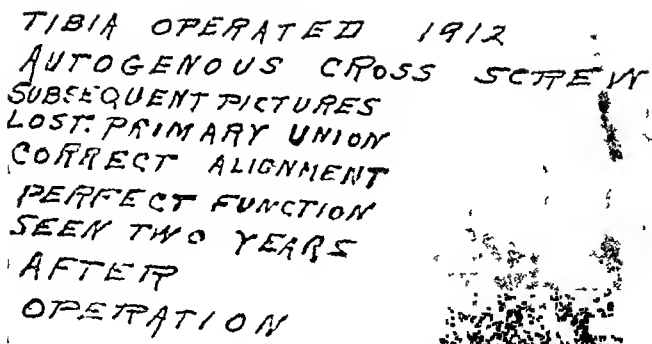 TIBIA OPERATED 1912
AUTOGENOUS CROSS SCREW
SUBSEQUENT PICTURES
LOST. PRIMARY UNION
CORRECT ALIGNMENT
PERFECT FUNCTION
SEEN TWO YEARS
AFTER
OPERATION